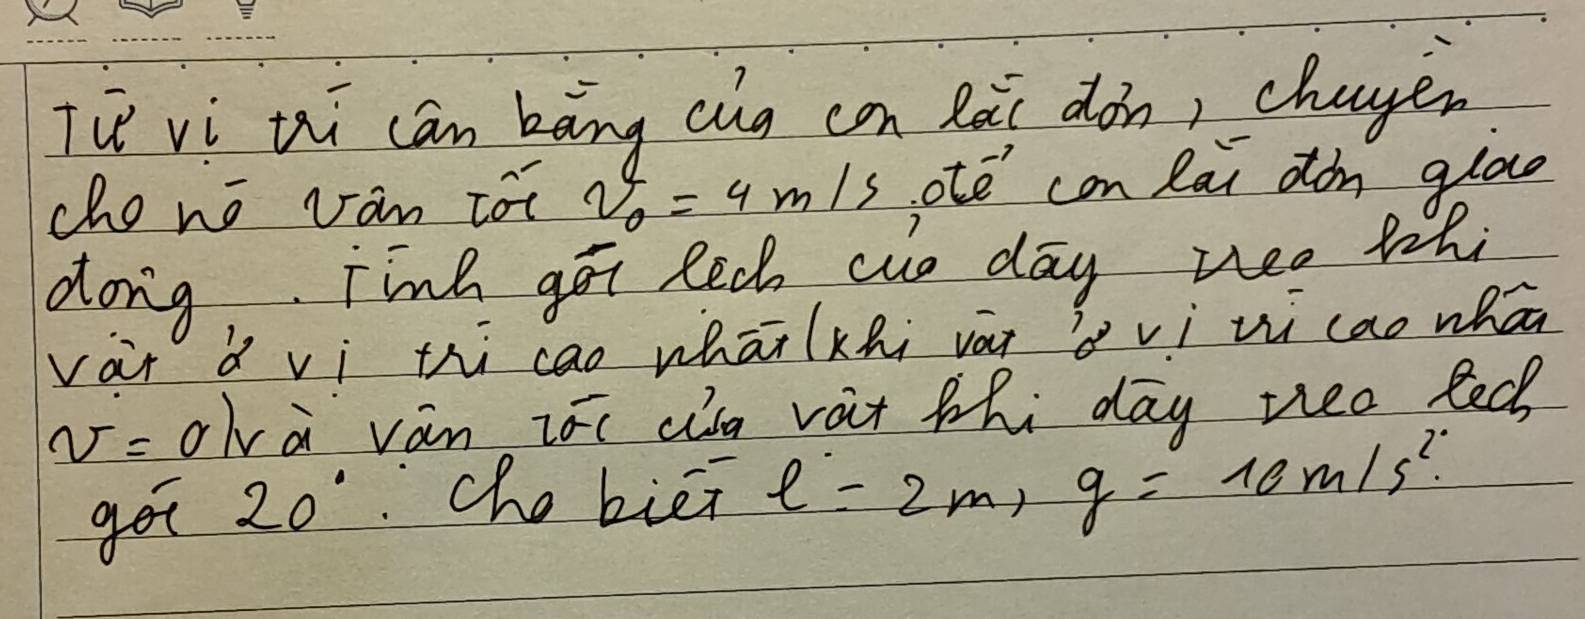 Từ vị trí cân bằng của con lắc đơn, chuyền
cho nó vận tốc v₀ = 4 m/s để con lắc đơn giao
động. Tính góc lệch của dây treo khi
vật ở vị trí cao nhất (khi vật ở vị trí cao nhất
v = 0) và vận tốc của vật khi dây treo lệch
góc 20°. Cho biết l = 2m, g = 10 m/s².